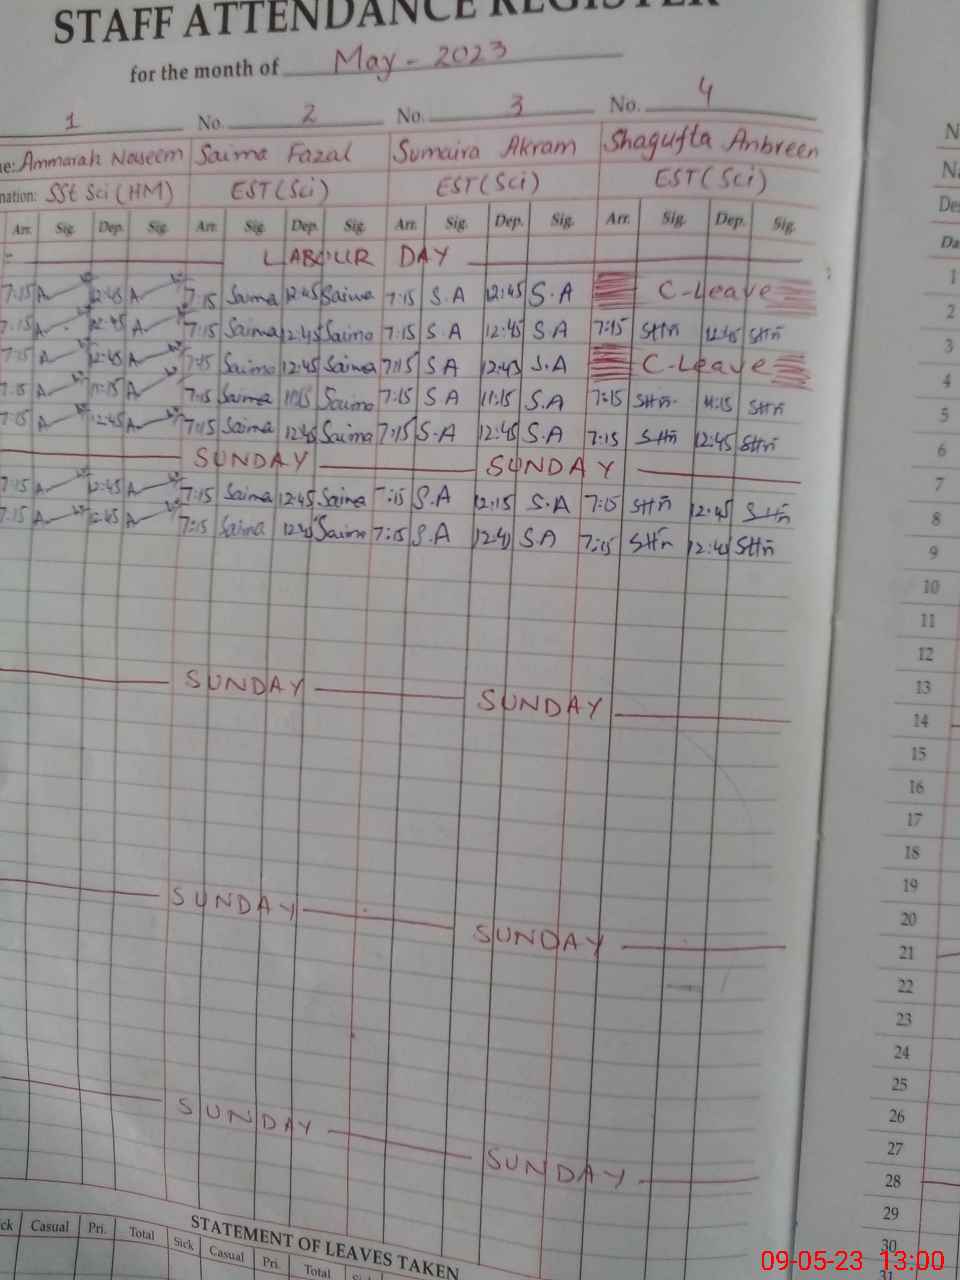 STAFF ATTENDANCE REGISTER
for the month of May - 2023
1 No. 2 No. 3 No. 4
e: Ammarah Naseem Saima Fazal Sumaira Akram Shagufta Anbreen
nation: SSt Sci (HM) EST (Sci) EST (Sci) EST (Sci)
Arr. Sig. Dep. Sig. Arr. Sig. Dep. Sig. Arr. Sig. Dep. Sig. Arr. Sig. Dep. Sig. Da
LABOUR DAY 1
7:15 A 12:45 A 7:15 Saima 12:45 Saima 7:15 S.A 12:45 S.A C-Leave 2
7:15 A 12:45 A 7:15 Saima 12:45 Saima 7:15 S.A 12:45 S.A 7:15 SHñ 12:45 SHñ 3
7:15 A 12:45 A 7:15 Saima 12:45 Saima 7:15 S A 12:45 S.A C-Leave 4
7:15 A 11:15 A 7:15 Saima 11:15 Saima 7:15 S A 11:15 S.A 7:15 SHñ 11:15 SHñ 5
7:15 A 12:45 A 7:15 Saima 12:45 Saima 7:15 S.A 12:45 S.A 7:15 SHñ 12:45 SHñ 6
SUNDAY SUNDAY 7
7:15 A 12:45 A 7:15 Saima 12:45 Saima 7:15 S.A 12:15 S.A 7:15 SHñ 12:45 SHñ 8
7:15 A 12:45 A 7:15 Saima 12:45 Saima 7:15 S.A 12:45 SA 7:15 SHñ 12:45 SHñ 9
10
11
12
13
SUNDAY SUNDAY 14
15
16
17
18
19
20
SUNDAY SUNDAY 21
22
23
24
25
26
27
SUNDAY SUNDAY 28
29
30
31
STATEMENT OF LEAVES TAKEN
ck Casual Pri. Total Sick Casual Pri. Total
09-05-23 13:00